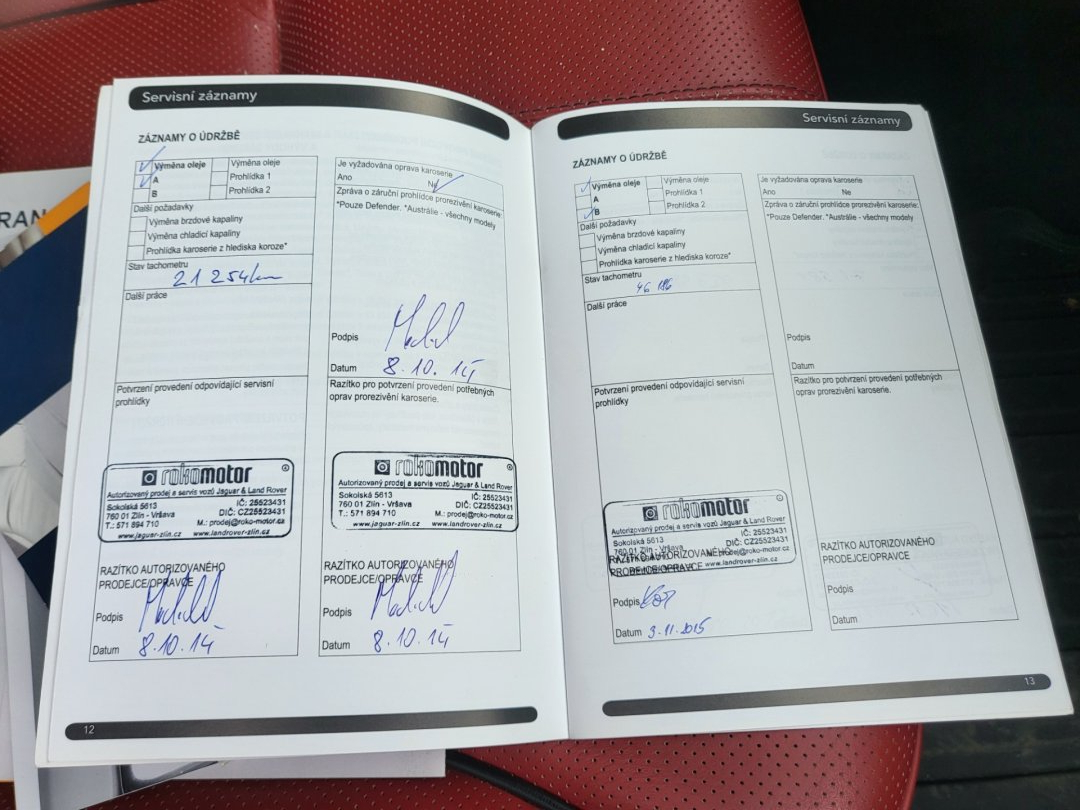 RAN
Servisní záznamy
ZÁZNAMY O ÚDRŽBĚ
Výměna oleje
A
B
Výměna oleje
Prohlídka 1
Prohlídka 2
Další požadavky
Výměna brzdové kapaliny
Výměna chladicí kapaliny
Prohlídka karoserie z hlediska koroze*
Stav tachometru
21 254km
Další práce
Potvrzení provedení odpovídající servisní
prohlídky
rokomotor
Autorizovaný prodej a servis vozů Jaguar & Land Rover
Sokolská 5613 IČ: 25523431
760 01 Zlín - Vršava DIČ: CZ25523431
T.: 571 894 710 M.: prodej@roko-motor.cz
www.jaguar-zlin.cz www.landrover-zlin.cz
RAZÍTKO AUTORIZOVANÉHO
PRODEJCE/OPRAVCE
Podpis
Datum 8.10.14
Je vyžadována oprava karoserie
Ano Ne
Zpráva o záruční prohlídce prorezivění karoserie:
*Pouze Defender. *Austrálie - všechny modely
Podpis
Datum 8.10.14
Razítko pro potvrzení provedení potřebných
oprav prorezivění karoserie.
rokomotor
Autorizovaný prodej a servis vozů Jaguar & Land Rover
Sokolská 5613 IČ: 25523431
760 01 Zlín - Vršava DIČ: CZ25523431
T.: 571 894 710 M.: prodej@roko-motor.cz
www.jaguar-zlin.cz www.landrover-zlin.cz
RAZÍTKO AUTORIZOVANÉHO
PRODEJCE/OPRAVCE
Podpis
Datum 8.10.14
12
Servisní záznamy
ZÁZNAMY O ÚDRŽBĚ
Výměna oleje
A
B
Výměna oleje
Prohlídka 1
Prohlídka 2
Další požadavky
Výměna brzdové kapaliny
Výměna chladicí kapaliny
Prohlídka karoserie z hlediska koroze*
Stav tachometru
46 186
Další práce
Potvrzení provedení odpovídající servisní
prohlídky
rokomotor
Autorizovaný prodej a servis vozů Jaguar & Land Rover
Sokolská 5613 IČ: 25523431
760 01 Zlín - Vršava DIČ: CZ25523431
prodej@roko-motor.cz
www.landrover-zlin.cz
RAZÍTKO AUTORIZOVANÉHO
PRODEJCE/OPRAVCE
Podpis
Datum 3.11.2015
Je vyžadována oprava karoserie
Ano Ne
Zpráva o záruční prohlídce prorezivění karoserie:
*Pouze Defender. *Austrálie - všechny modely
Podpis
Datum
Razítko pro potvrzení provedení potřebných
oprav prorezivění karoserie.
RAZÍTKO AUTORIZOVANÉHO
PRODEJCE/OPRAVCE
Podpis
Datum
13